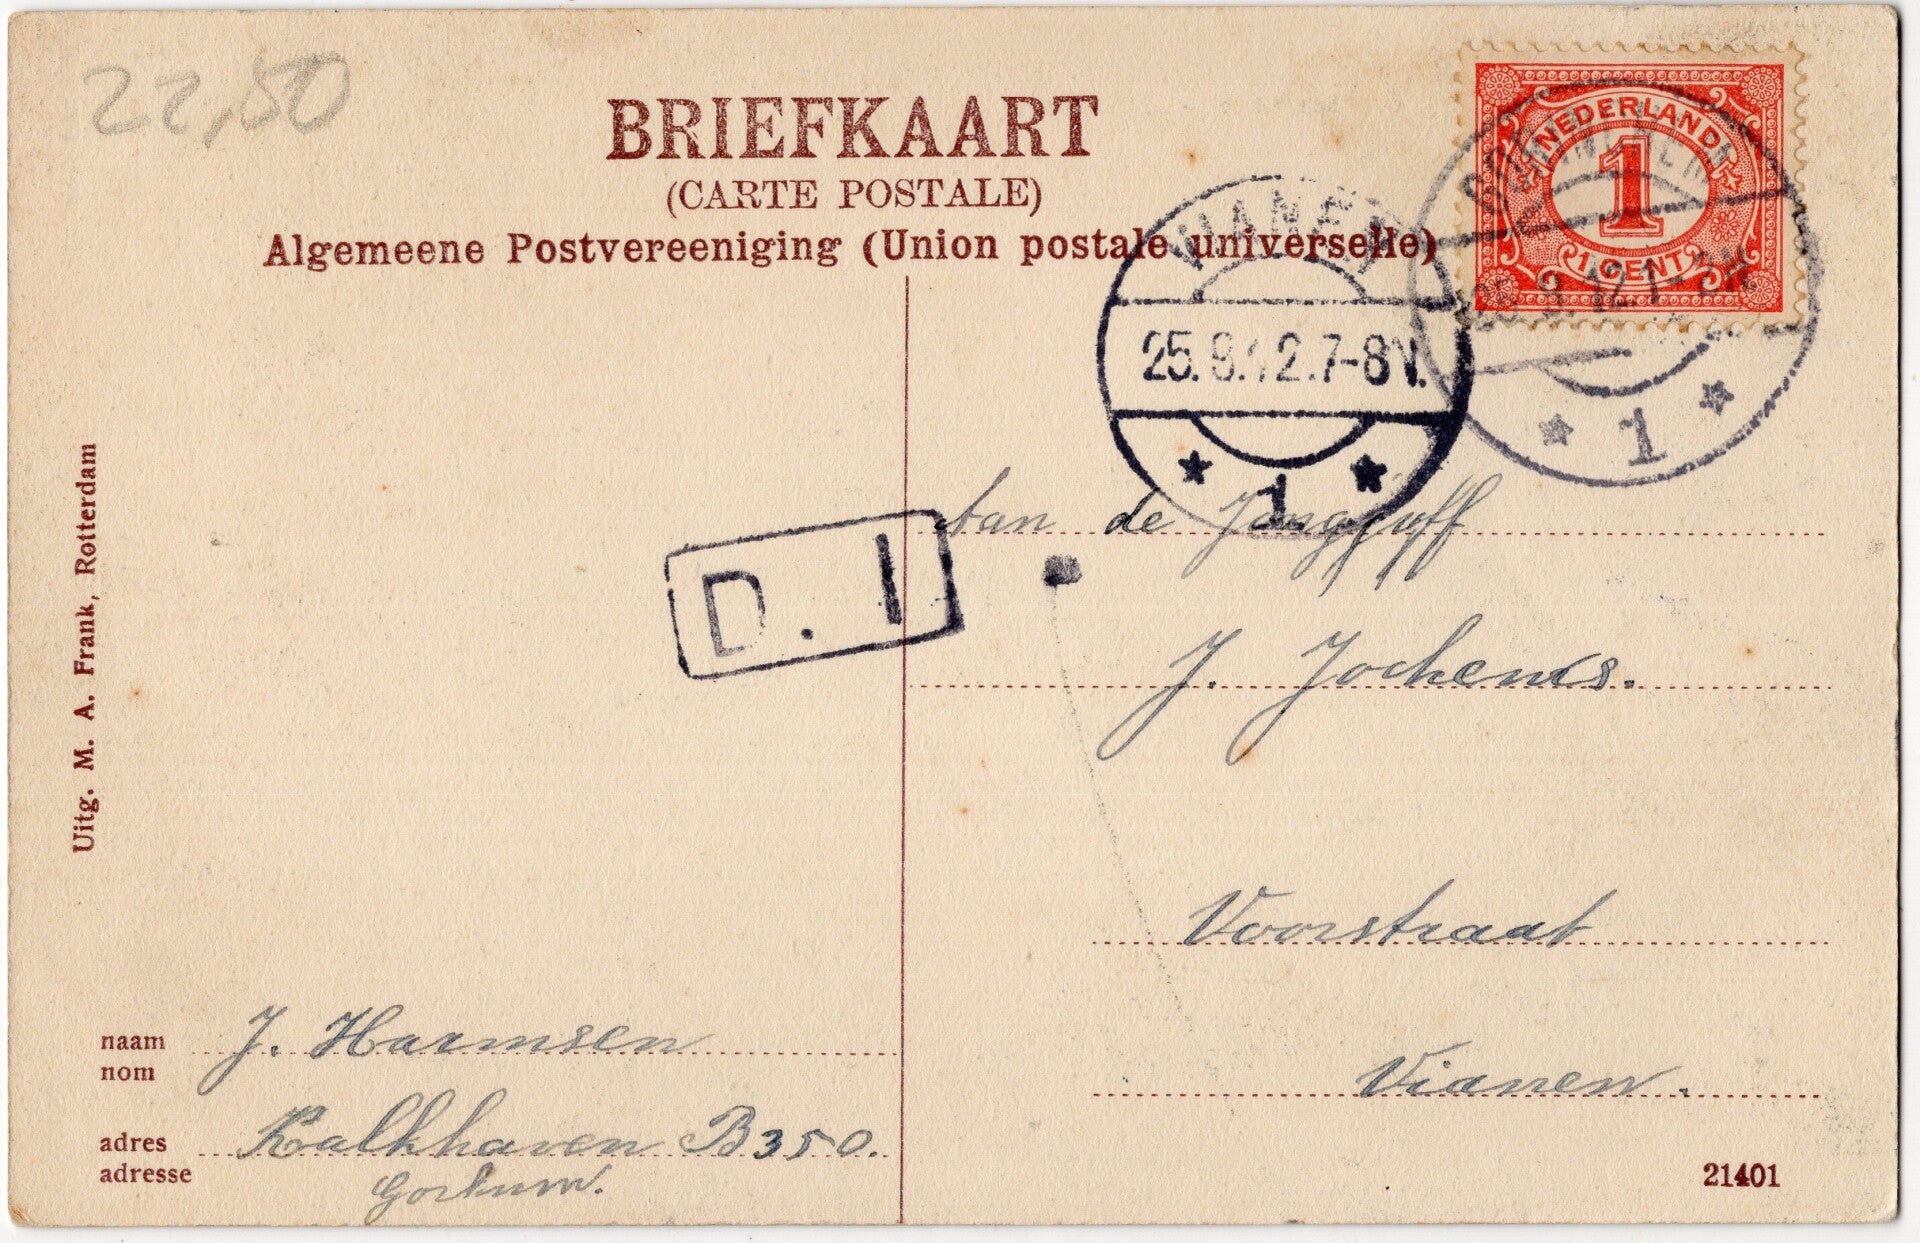 22,50
BRIEFKAART
(CARTE POSTALE)
Algemeene Postvereeniging (Union postale universelle)
NEDERLAND
1
1 CENT
GORINCHEM
1
VIANEN
25.8.12.7-8V.
1
D. I
Uitg. M. A. Frank, Rotterdam
Aan de Jongejuff
J. Jochems.
Voorstraat
Vianen.
naam J. Harmsen
nom
adres Kalkhaven B350.
adresse Gorkum.
21401